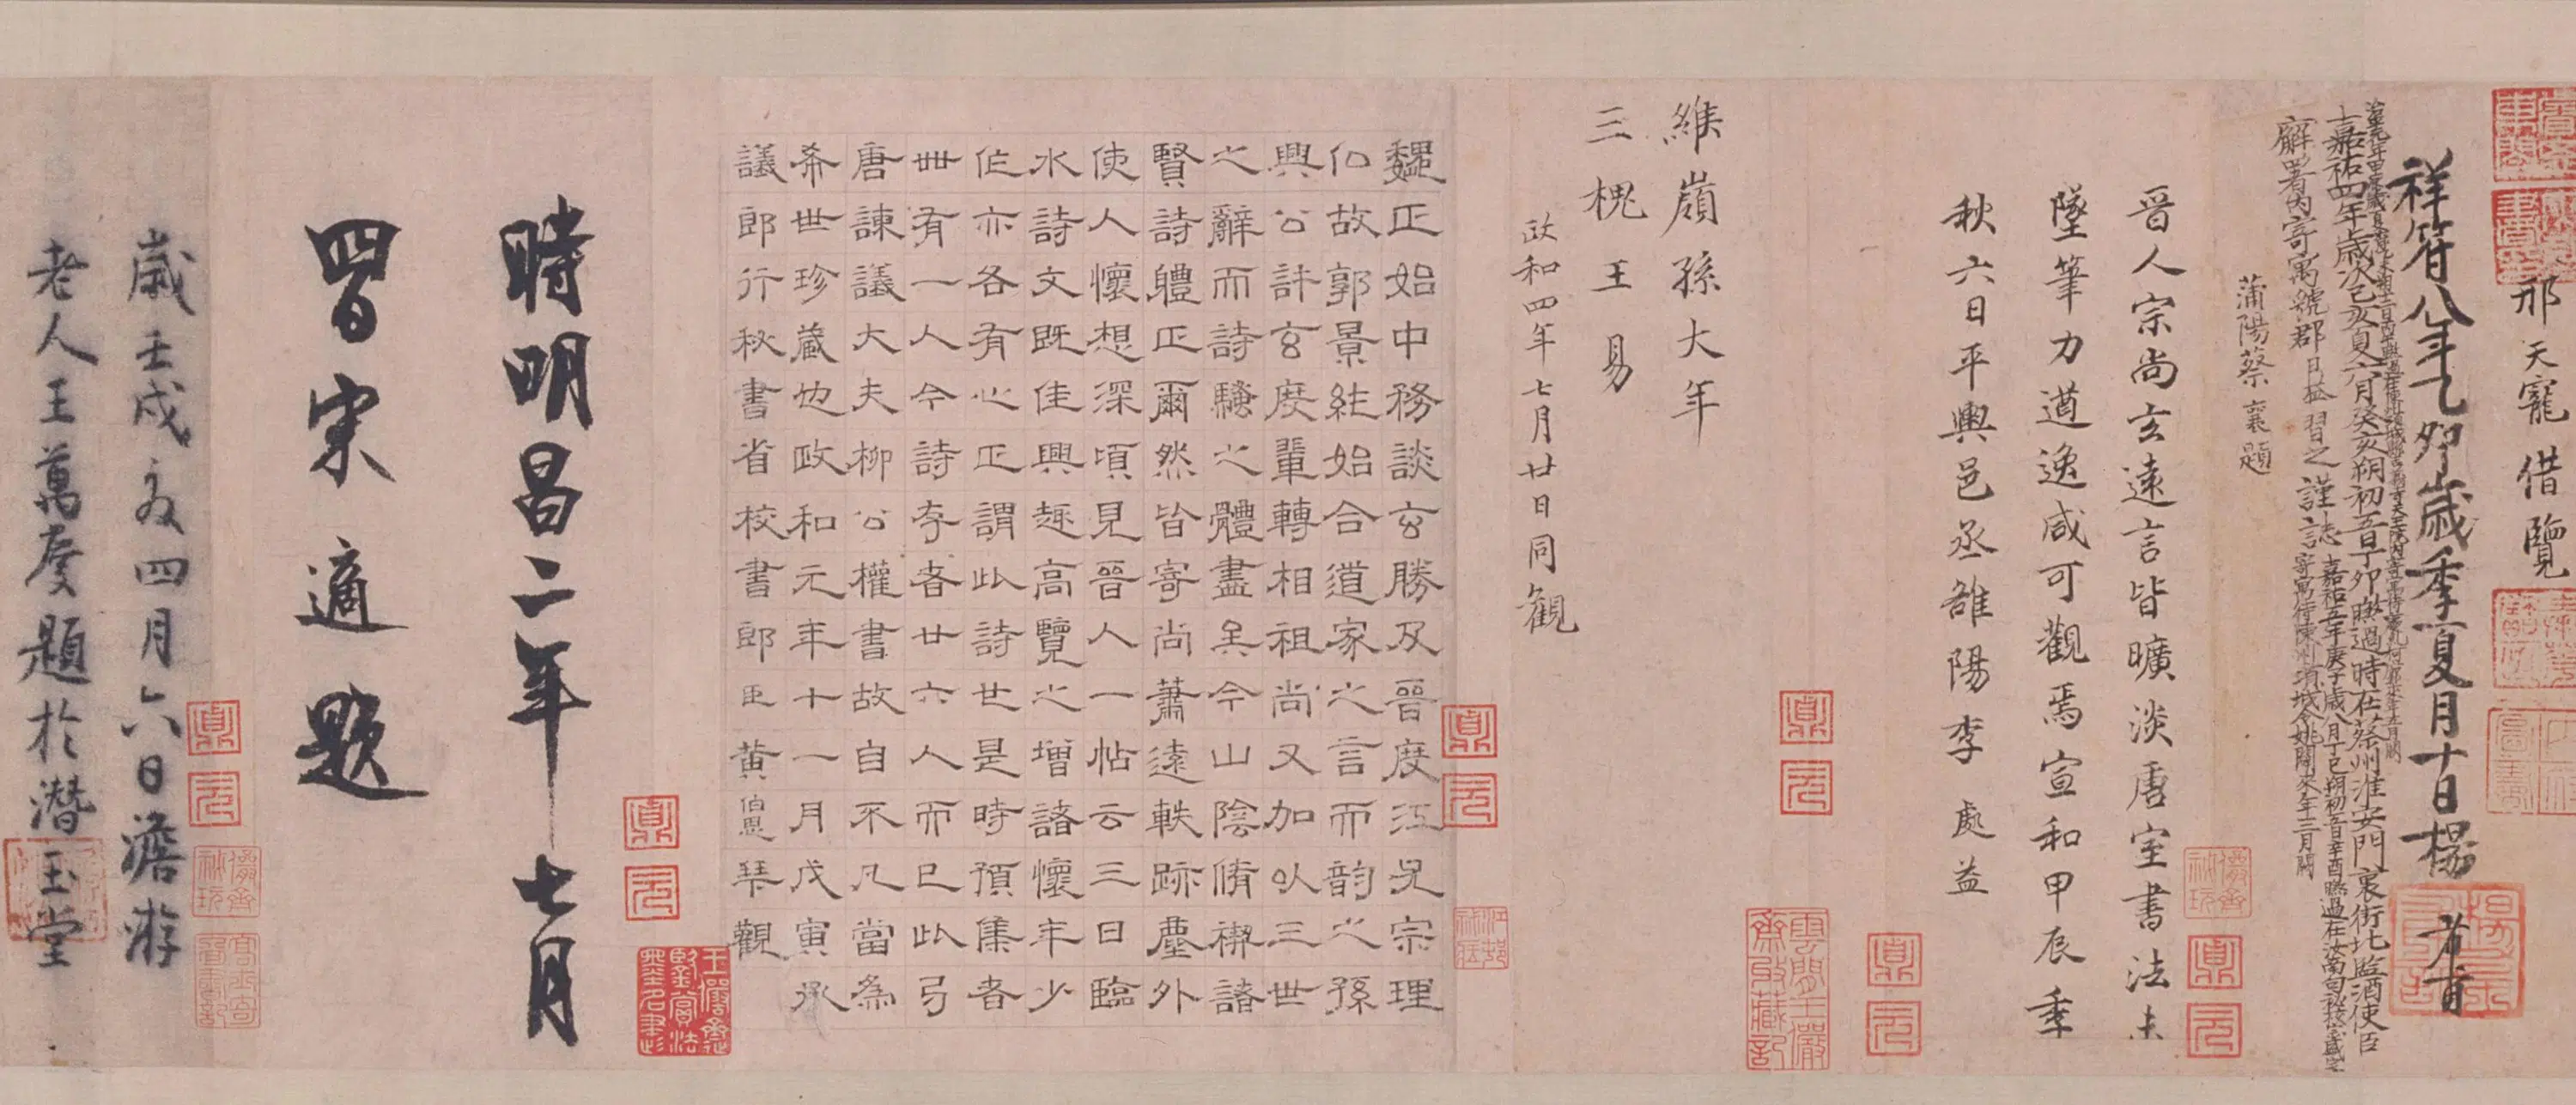 邢天寵借覽
祥符八年乙卯歲季夏月十日楊
嘉祐四年歲次己亥夏六月癸亥朔初五日丁卯聯過時在蔡州淮安門裏街北監酒使臣
廨署內寄寓號郡日益習之謹誌
嘉祐五年庚子歲八月丁巳朔初五日辛酉
蒲陽蔡襄題
晉人宗尚玄遠言皆曠淡唐室書法未
墜筆力遒逸咸可觀焉宣和甲辰季
秋六日平輿邑丞雒陽李處益
維嶺孫大年
三槐王易
政和四年七月廿日同觀
魏正始中務談玄勝及晉度江尤宗理
仏故郭景純始合道家之言而韵之孫
興公許玄度輩轉相祖尚又加以三世
之辭而詩騷之體盡矣今山陰脩禊諸
賢詩體正爾然皆寄尚蕭遠軼跡塵外
使人懷想深頃見晉人一帖云三日臨
水詩文既佳興趣高覽之增諸懷年少
作亦各有心正謂此詩廿是時預集者
卌有一人今詩存者廿六人而已此弓
唐諫議大夫柳公權書故自不凡當為
希世珍藏也政和元年十一月戊寅承
議郎行秘書省校書郎臣黃伯思琴觀
時明昌二年七月
四日宋適題
歲壬戌夏四月六日澹游
老人王萬慶題於潛玉堂